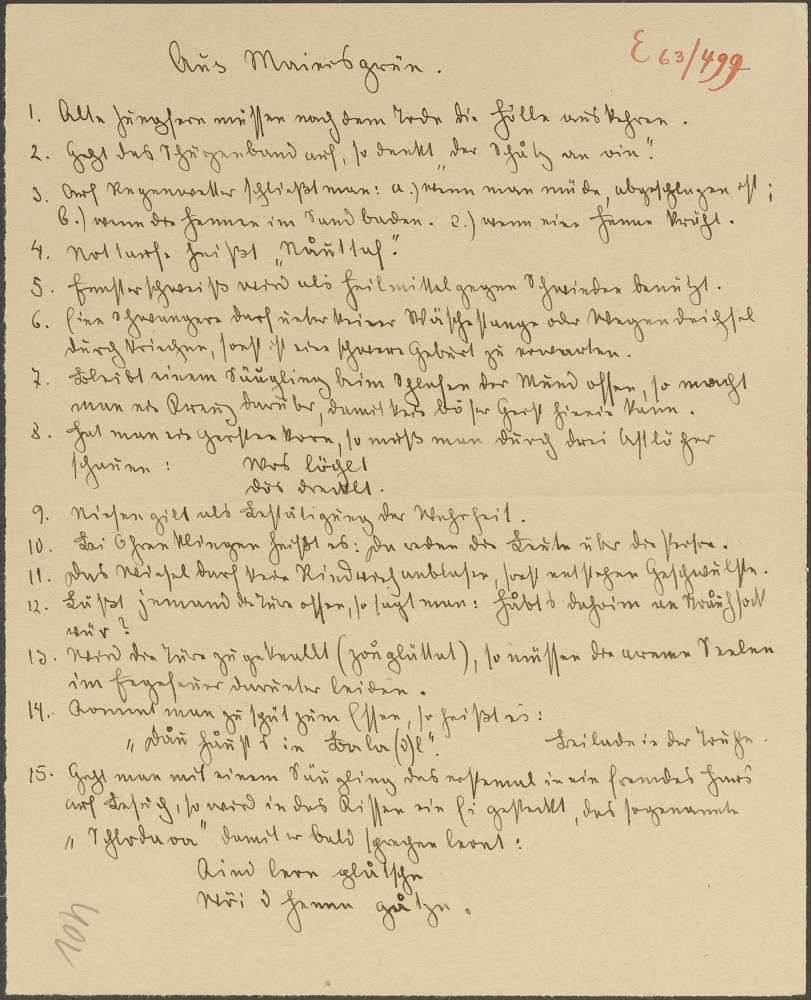 Aus Maiersgrün.
E 63/499
1. Alte Jungfern müssen nach dem Tode die Hölle auskehren.
2. Geht das Schürzenband auf, so denkt „der Schåtz an ein“.
3. Auf Regenwetter schließt man: a.) wenn man müde, abgeschlagen ist;
b.) wenn die Hennen im Sand baden. c.) wenn eine Henne kräht.
4. Nottaufe heißt „Nåuttaf“.
5. Fensterschweiß wird als Heilmittel gegen Schwinden benützt.
6. Eine Schwangere darf unter keiner Wäschestange oder Wagendeichsel
durchkriechen, sonst ist eine schwere Geburt zu erwarten.
7. Bleibt einem Säugling beim Schlafen der Mund offen, so macht
man ein Kreuz darüber, damit kein böser Geist hinein kann.
8. Hat man ein Gerstenkorn, so muß man durch drei Astlöcher
schauen: Wos löchlt
dös drecklt.
9. Niesen gilt als Bestätigung der Wahrheit.
10. Bei Ohrenklingen heißt es: Da reden die Leute über die Person.
11. Das Wiesel darf kein Rindviech anblasen, sonst entstehen Geschwülste.
12. Läßt jemand die Türe offen, so sagt man: Håbt's daheim an
vür?
13. Wird die Türe zugeknallt (), so müssen die armen Seelen
im Fegefeuer darunter leiden.
14. Kommt man zu spät zum Essen, so heißt es:
„Dåu håust's in Bala(d)l“. Beilade in der Truhe.
15. Geht man mit einem Säugling das erstemal in ein fremdes Haus
auf Besuch, so wird in das Kissen ein Ei gesteckt, das sogenannte
damit er bald sprechen lernt:
Kind lern
Wöi d Henna gåtzn.